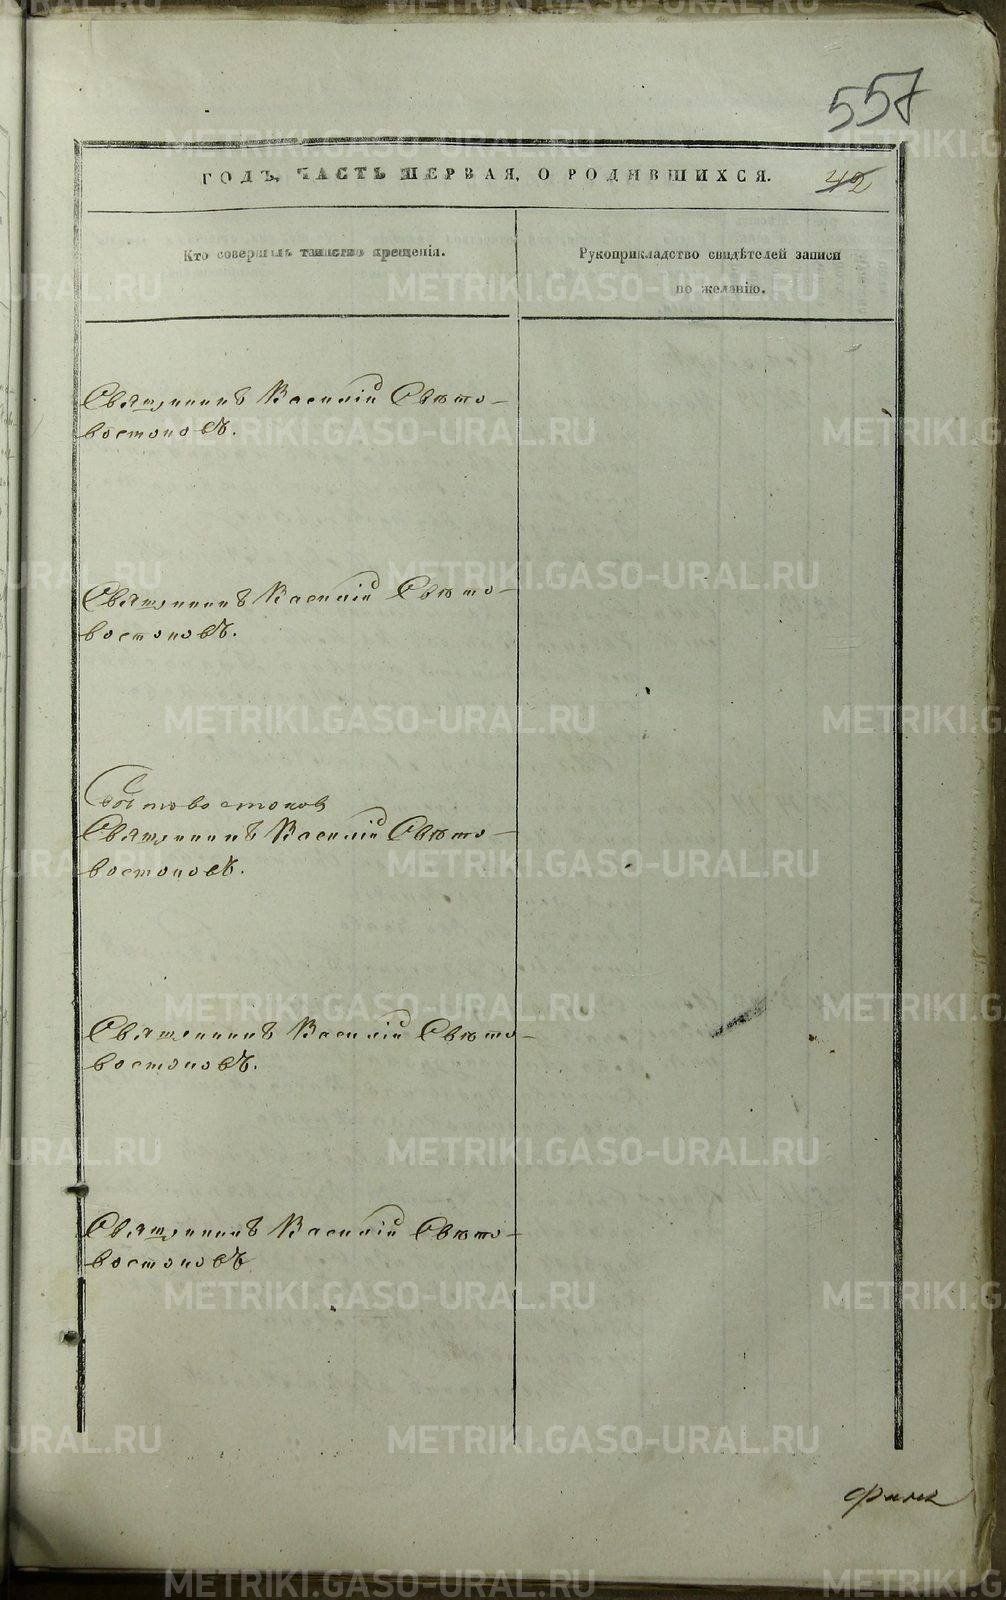 557
ГОДЪ, ЧАСТЬ ПЕРВАЯ, О РОДИВШИХСЯ.
42
Кто совершалъ таинство крещенія.
Рукоприкладство свидѣтелей записи
по желанію.
Священникъ Василій Свѣто-
востоковъ.
Священникъ Василій Свѣто-
востоковъ.
Свѣтовостоковъ
Священникъ Василій Свѣто-
востоковъ.
Священникъ Василій Свѣто-
востоковъ.
Священникъ Василій Свѣто-
востоковъ
METRIKI.GASO-URAL.RU